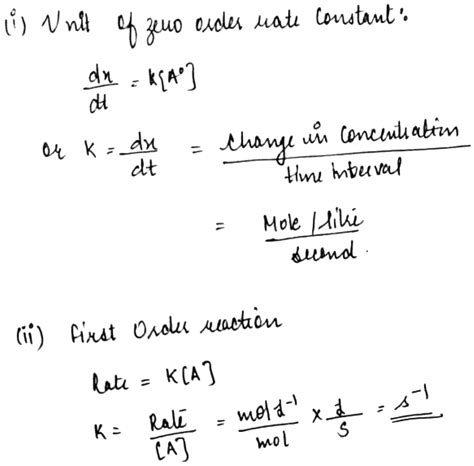 (i) Unit of zero order rate constant:
dx/dt = K[A°]
or K = dx/dt = Change in Concentration / time interval
= Mole / litre / second.
(ii) First Order reaction
Rate = K[A]
K = Rate/[A] = mol L⁻¹/mol × L/S = s⁻¹